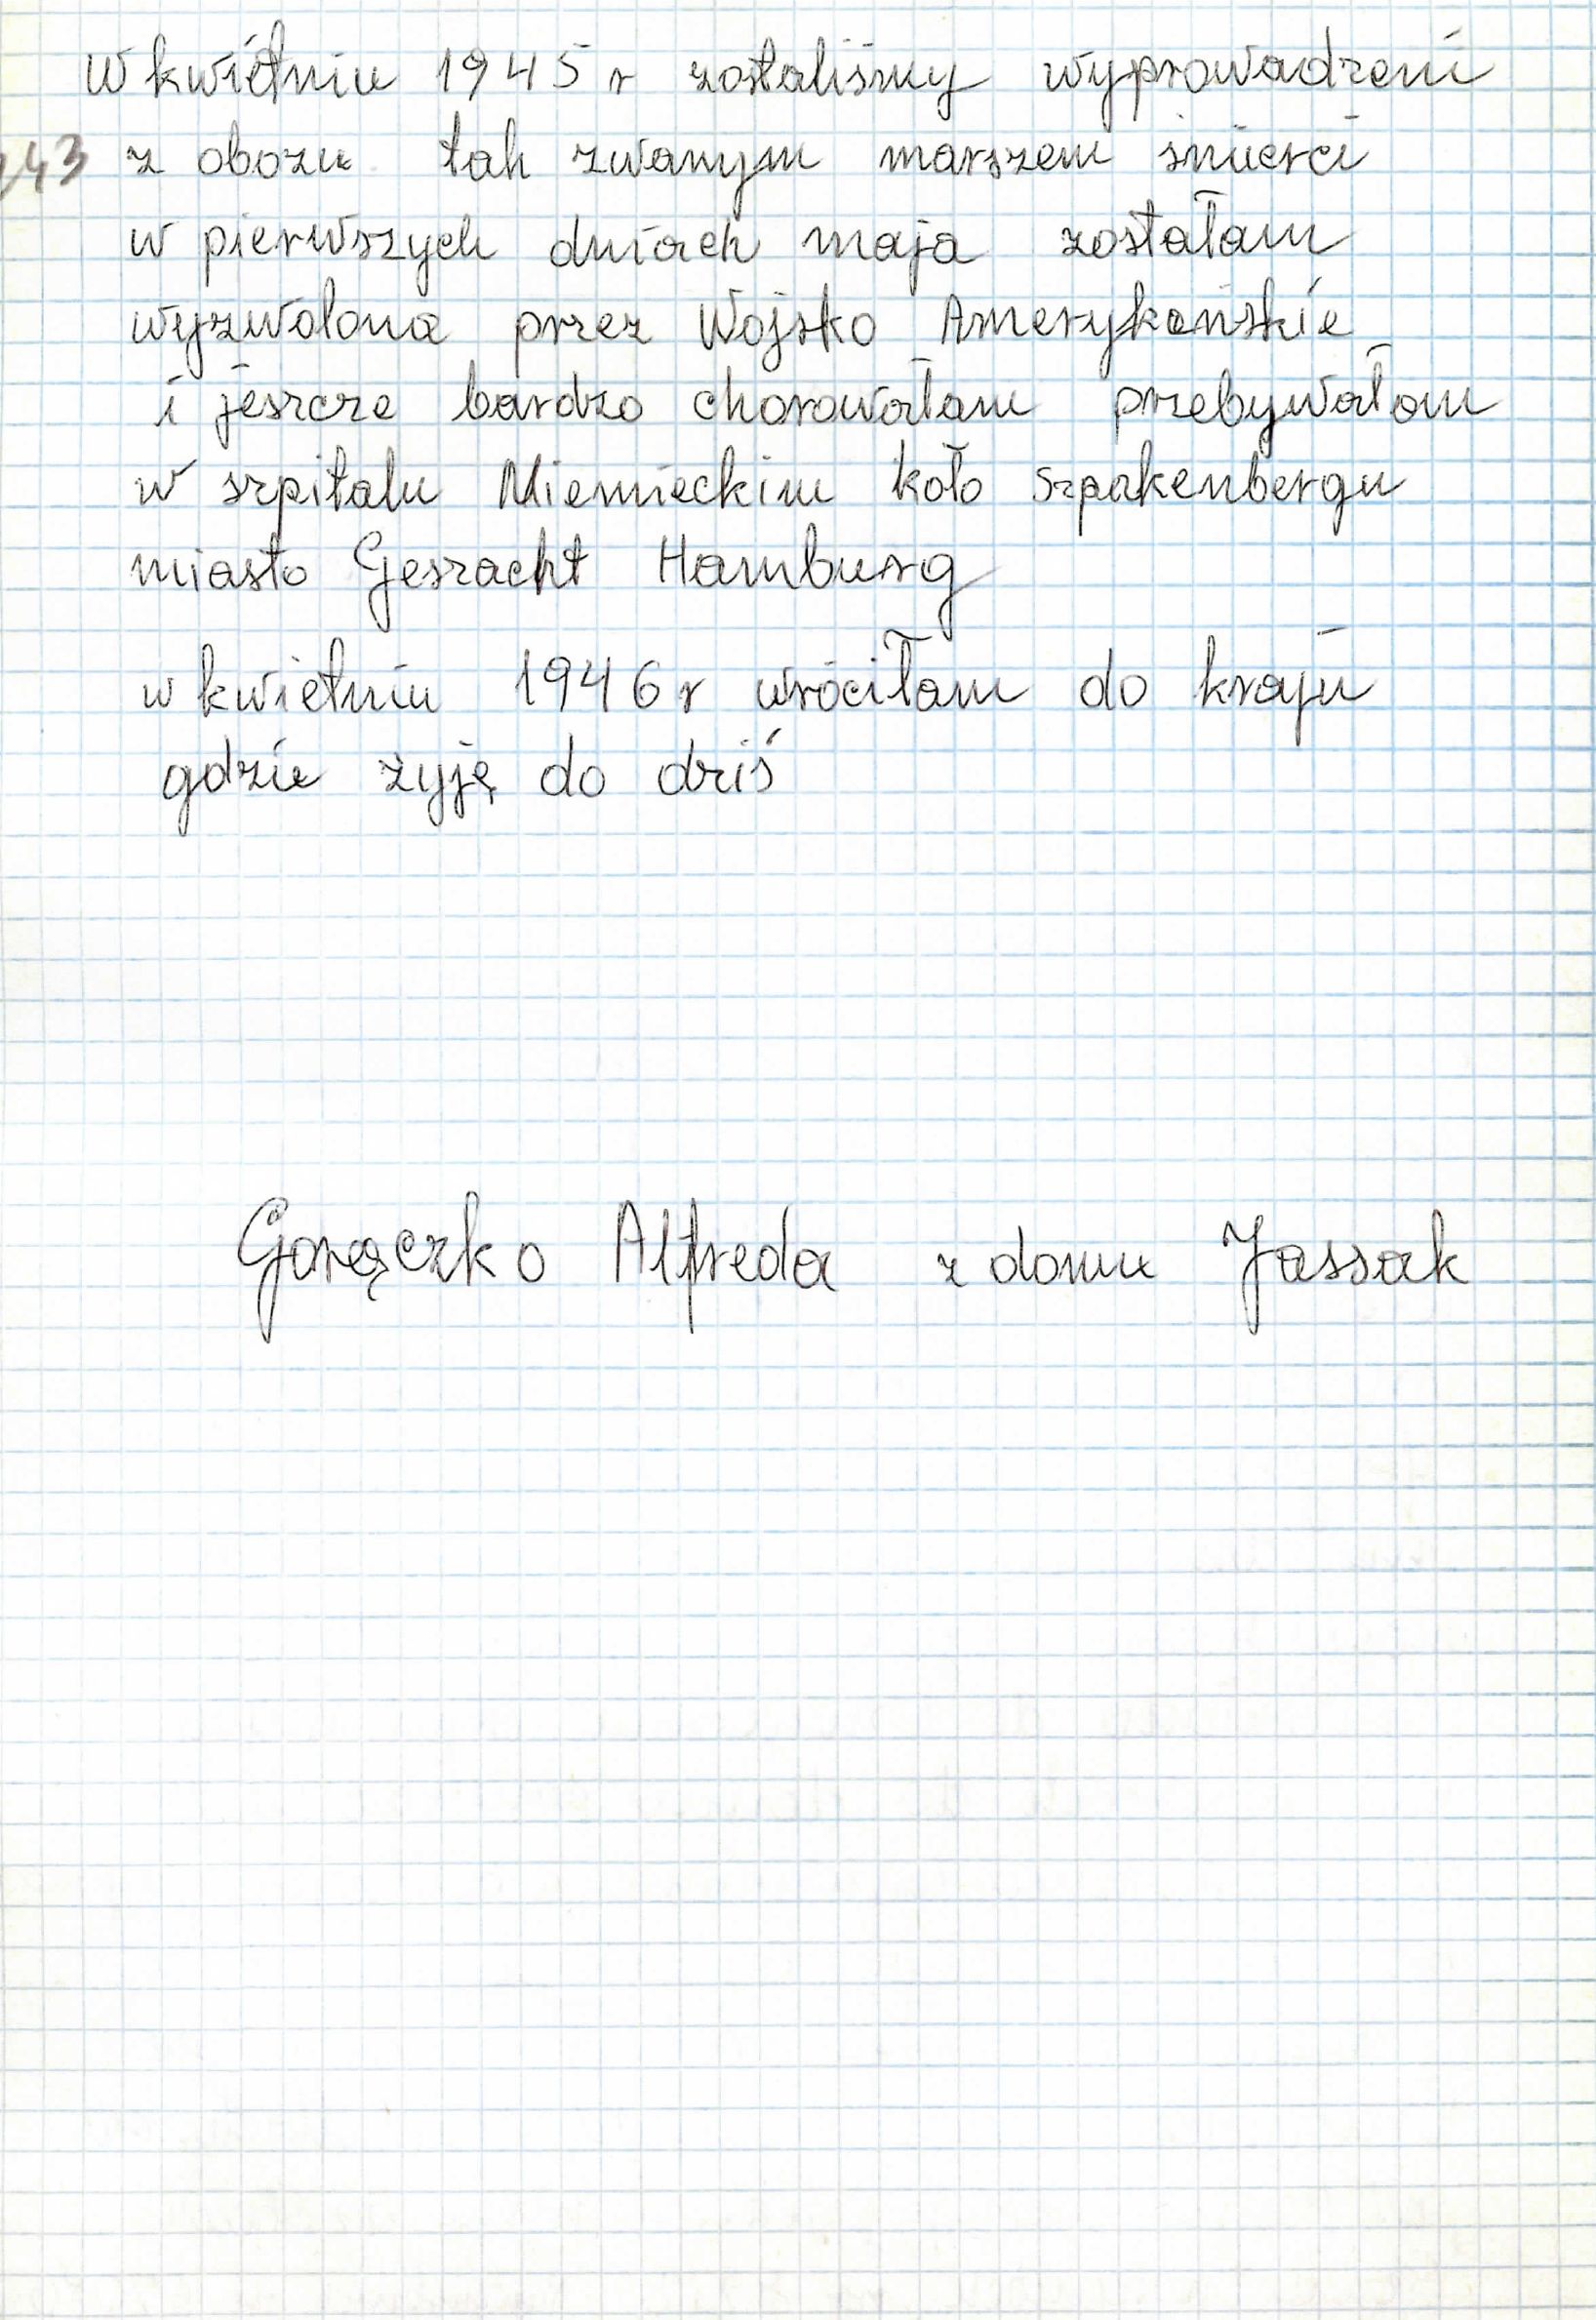 W kwietniu 1945 r zostaliśmy wyprowadzeni
z obozu tak zwanym marszem śmierci
w pierwszych dniach maja zostałam
wyzwolona przez Wojsko Amerykańskie
i jeszcze bardzo chorowałam przebywałam
w szpitalu Niemieckim koło Szpakenbergu
miasto Geszacht Hamburg
w kwietniu 1946 r wróciłam do kraju
gdzie żyję do dziś
Gorączko Alfreda z domu Jassak